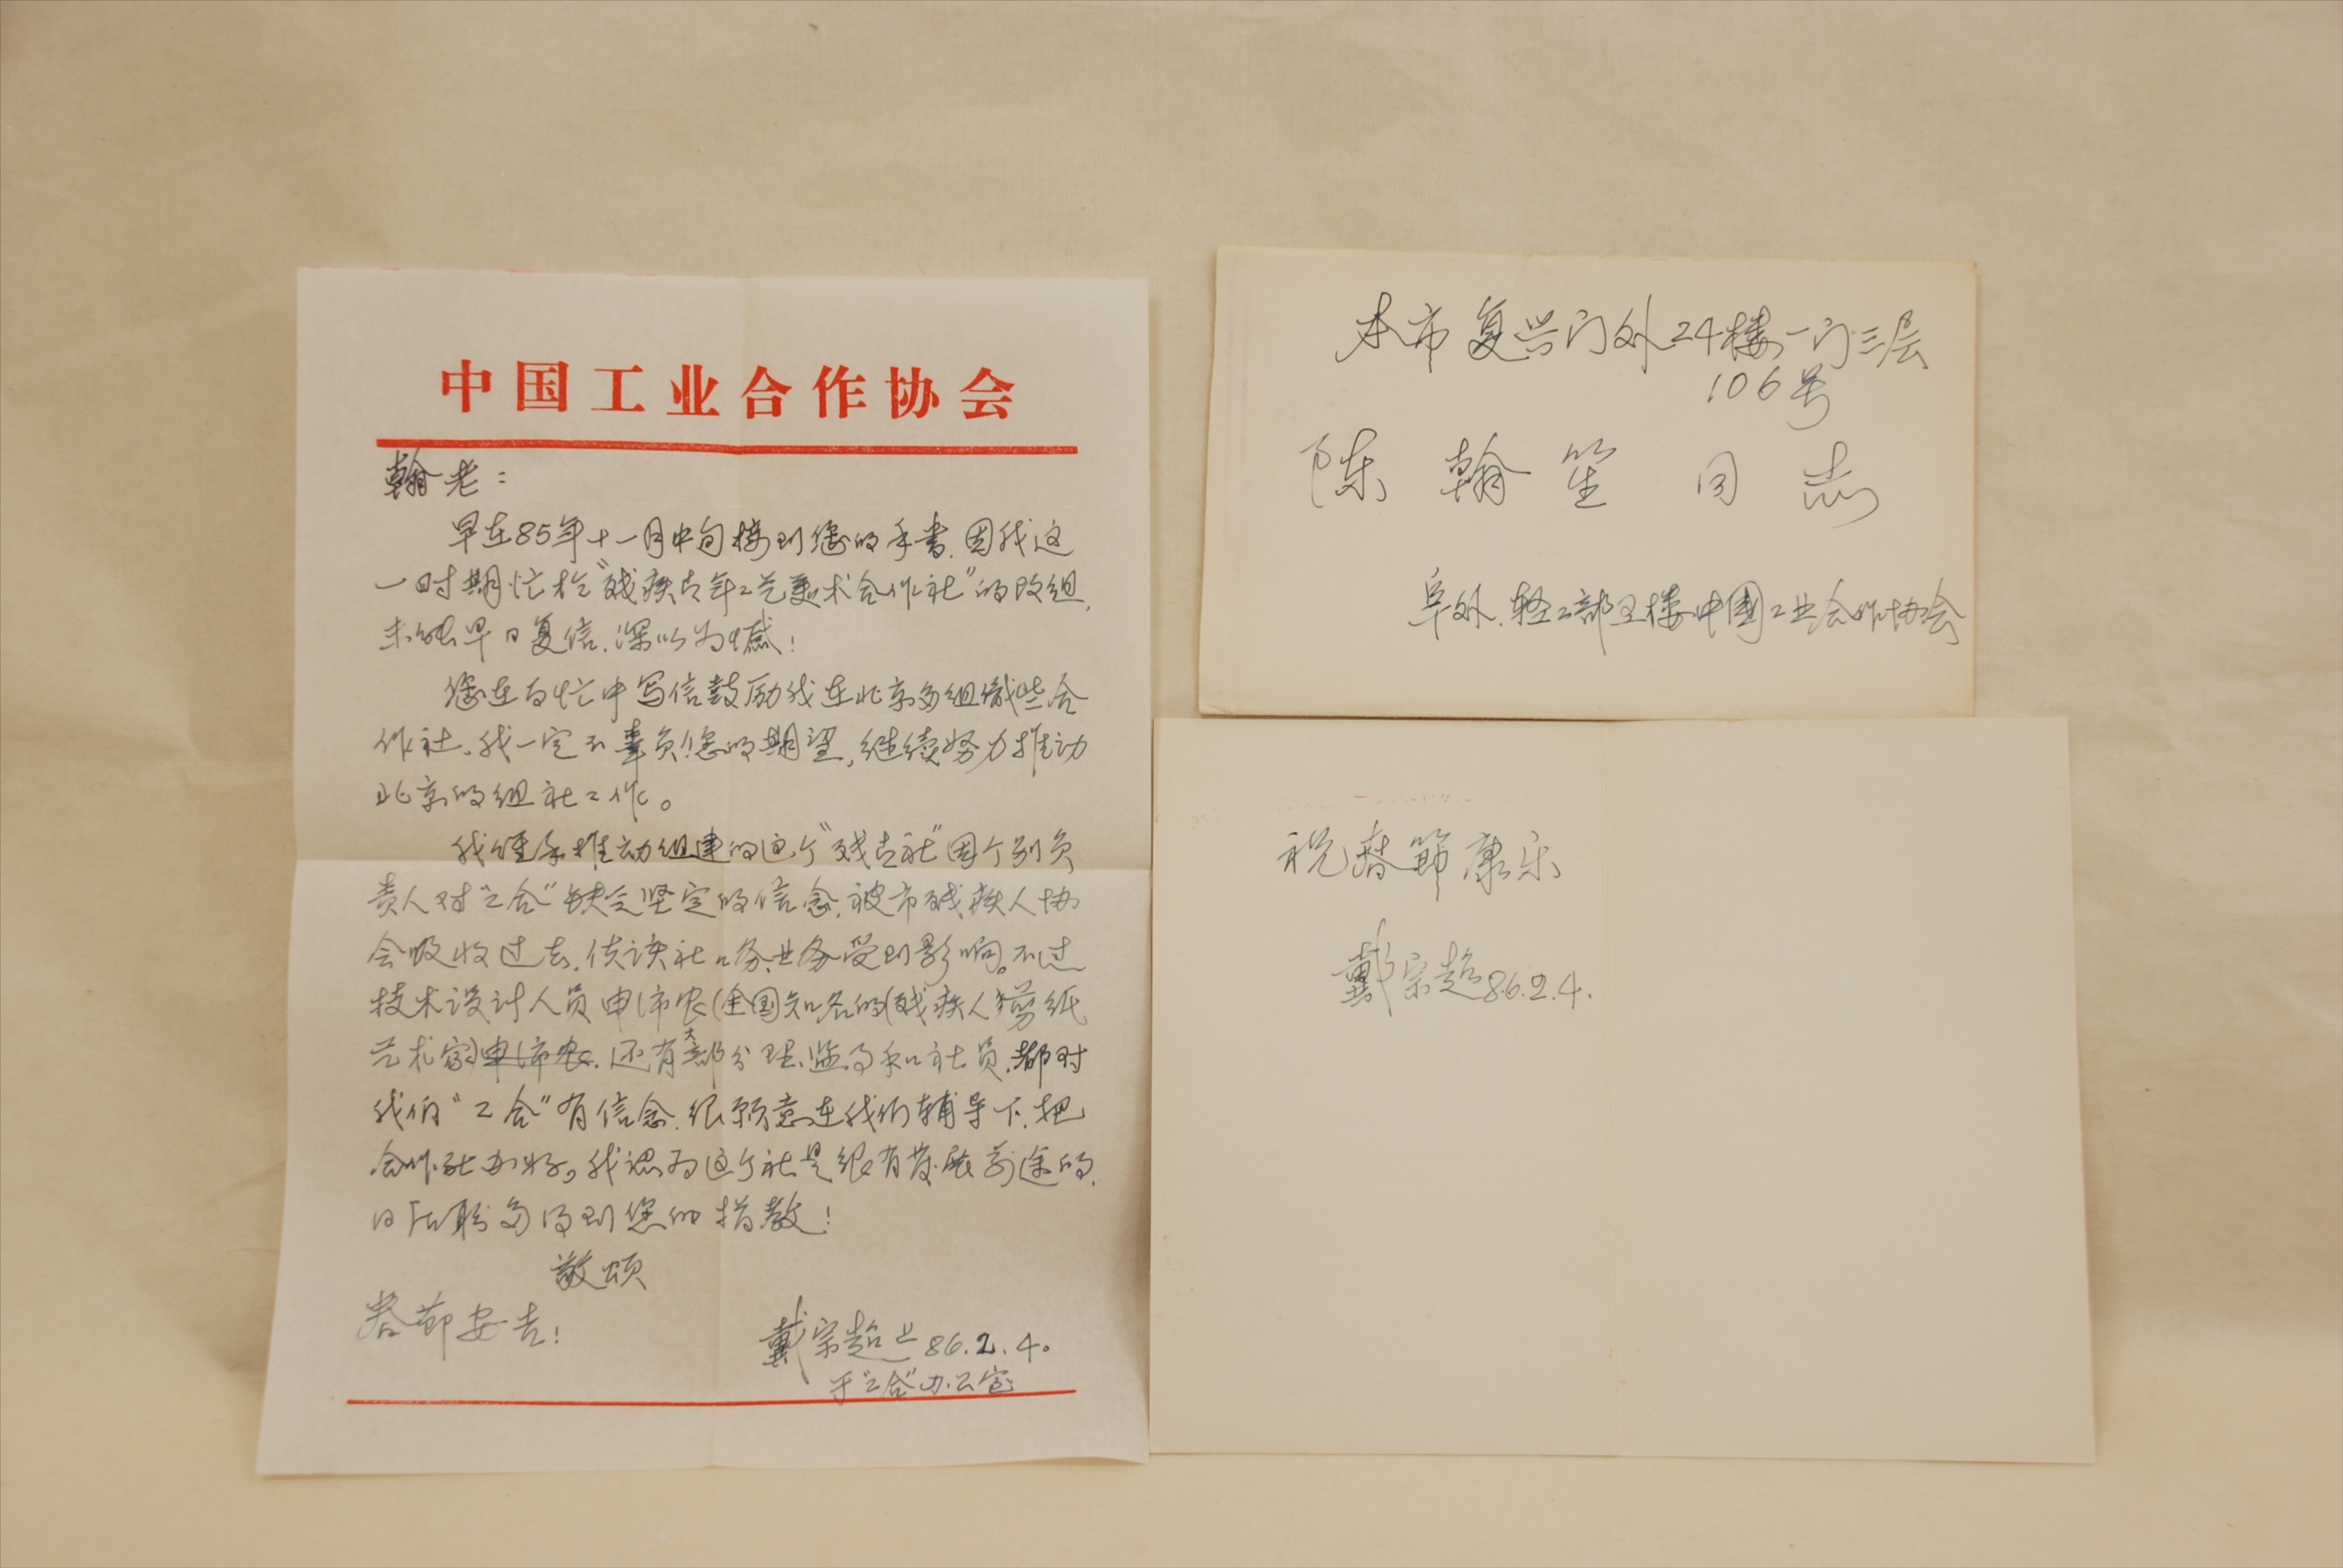 中国工业合作协会
翰老：
早在85年十一月中旬接到您的手书.因我这
一时期忙于“残疾青年工艺美术合作社”的改组,
未能早日复信.深以为憾!
您在百忙中写信鼓励我在北京多组织些合
作社,我一定不辜负您的期望,继续努力推动
北京的组社工作。
我经手推动组建的这个“残青社”因个别负
责人对“工合”缺乏坚定的信念.被市残疾人协
会吸收过去.使该社业务受到影响。不过
技术设计人员申沛农(全国知名的(残疾人)剪纸
艺术家)申沛农.还有大部分理、监事和社员.都对
我们“工合”有信念.很愿意在我们辅导下.把
合作社办好。我认为这个社是很有发展前途的.
日后盼多得到您的指教!
敬颂
春节安吉!
戴宗超上86.2.4.
于“工合”办公室
本市复兴门外24楼一门三层
106号
陈翰笙同志
阜外.轻工部主楼中国工业合作协会
祝春節康乐
戴宗超86.2.4.